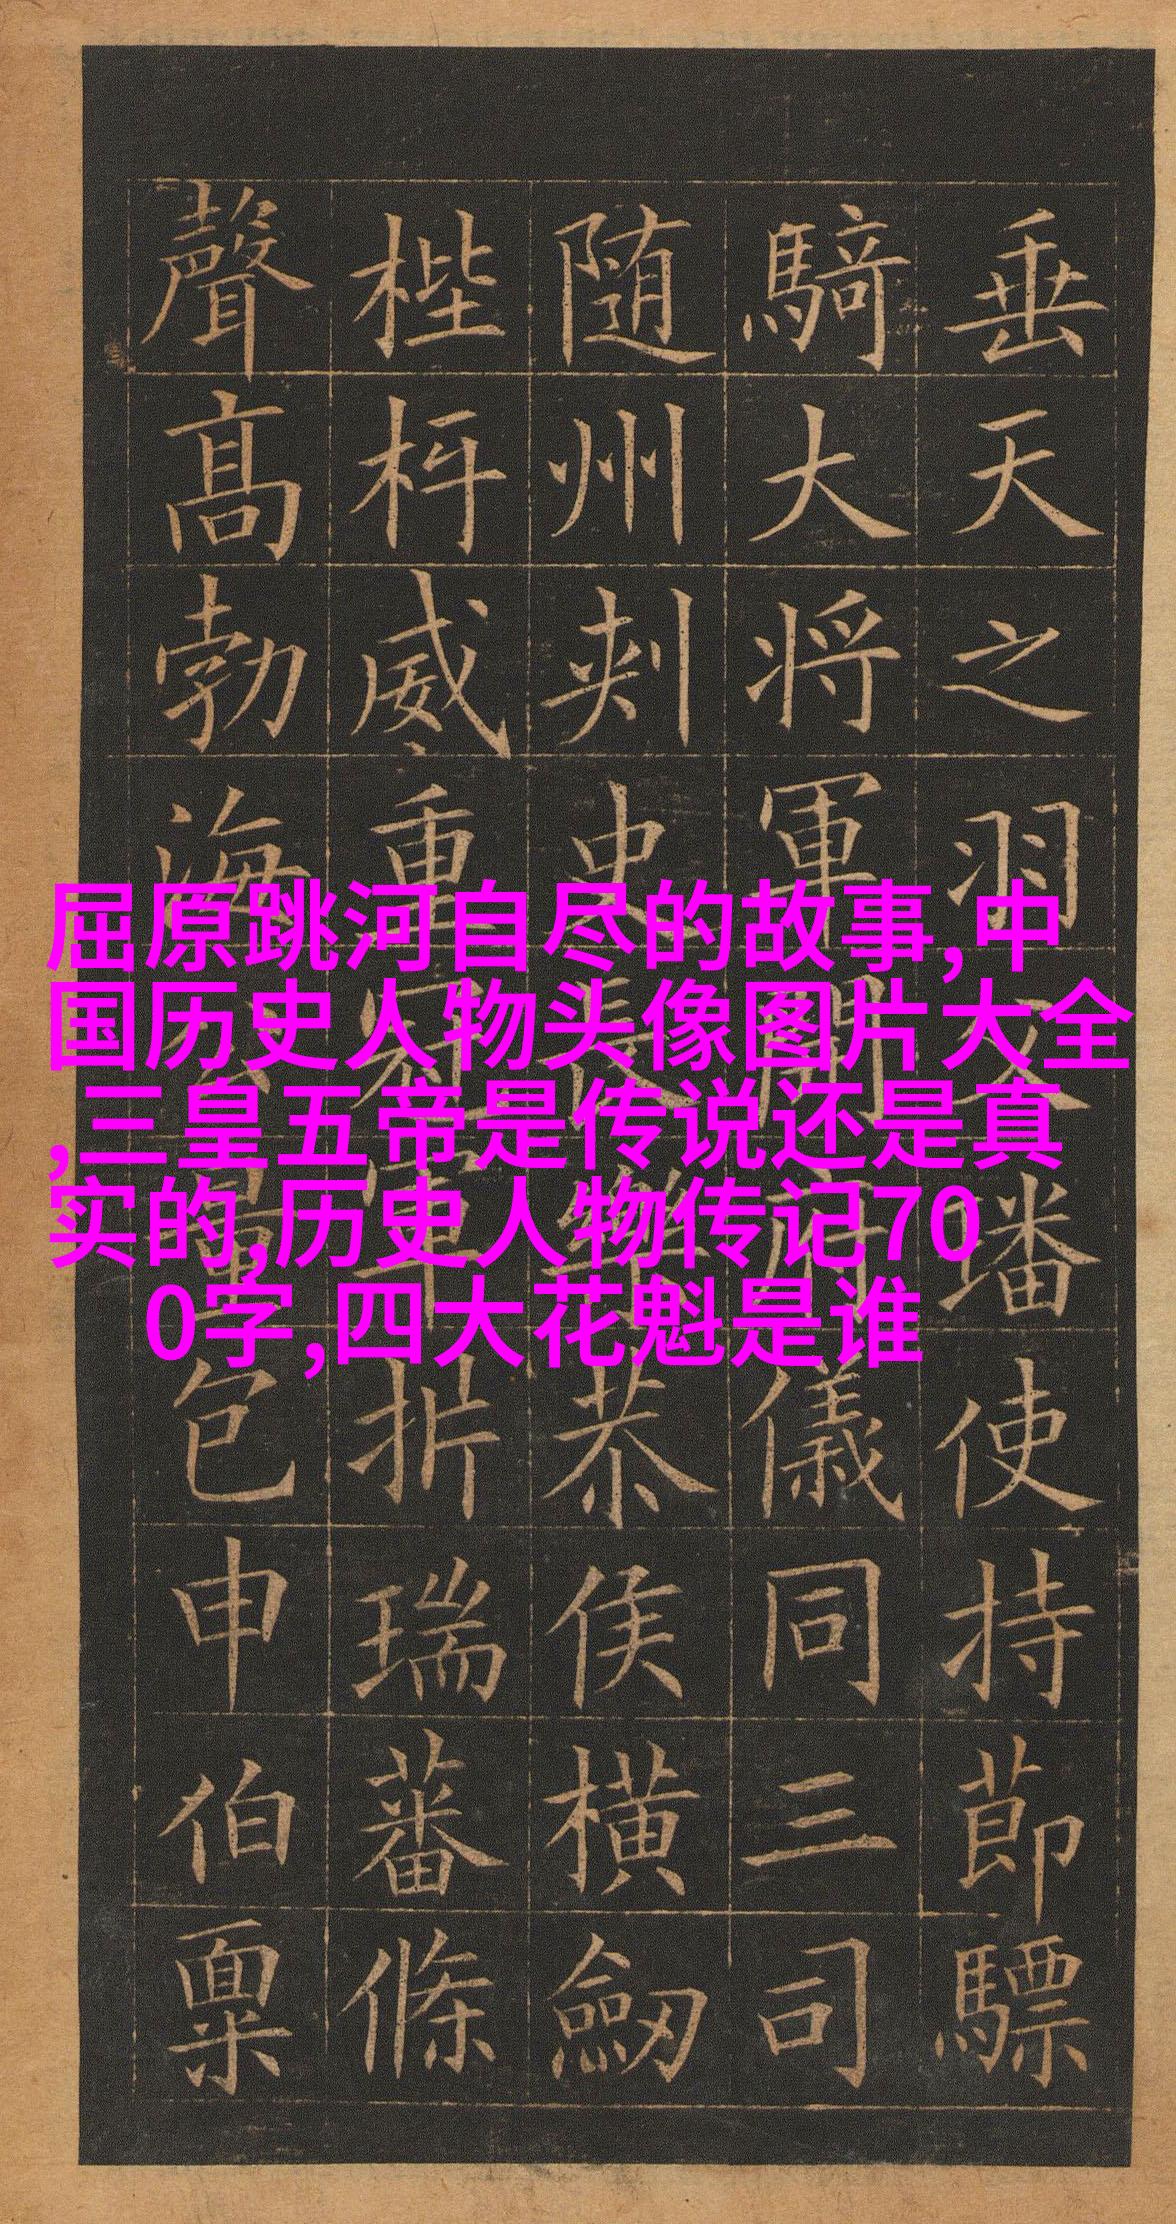 垂天之羽父璠使持節驃
騎大将軍開府儀同三司
随州刾史長樂恭侯橫劒
梐枑威重冠軍折瑞蕃條
聲高勃海公量包申伯禀
屈原跳河自尽的故事,中
国历史人物头像图片大全
,三皇五帝是传说还是真
实的,历史人物传记70
0字,四大花魁是谁